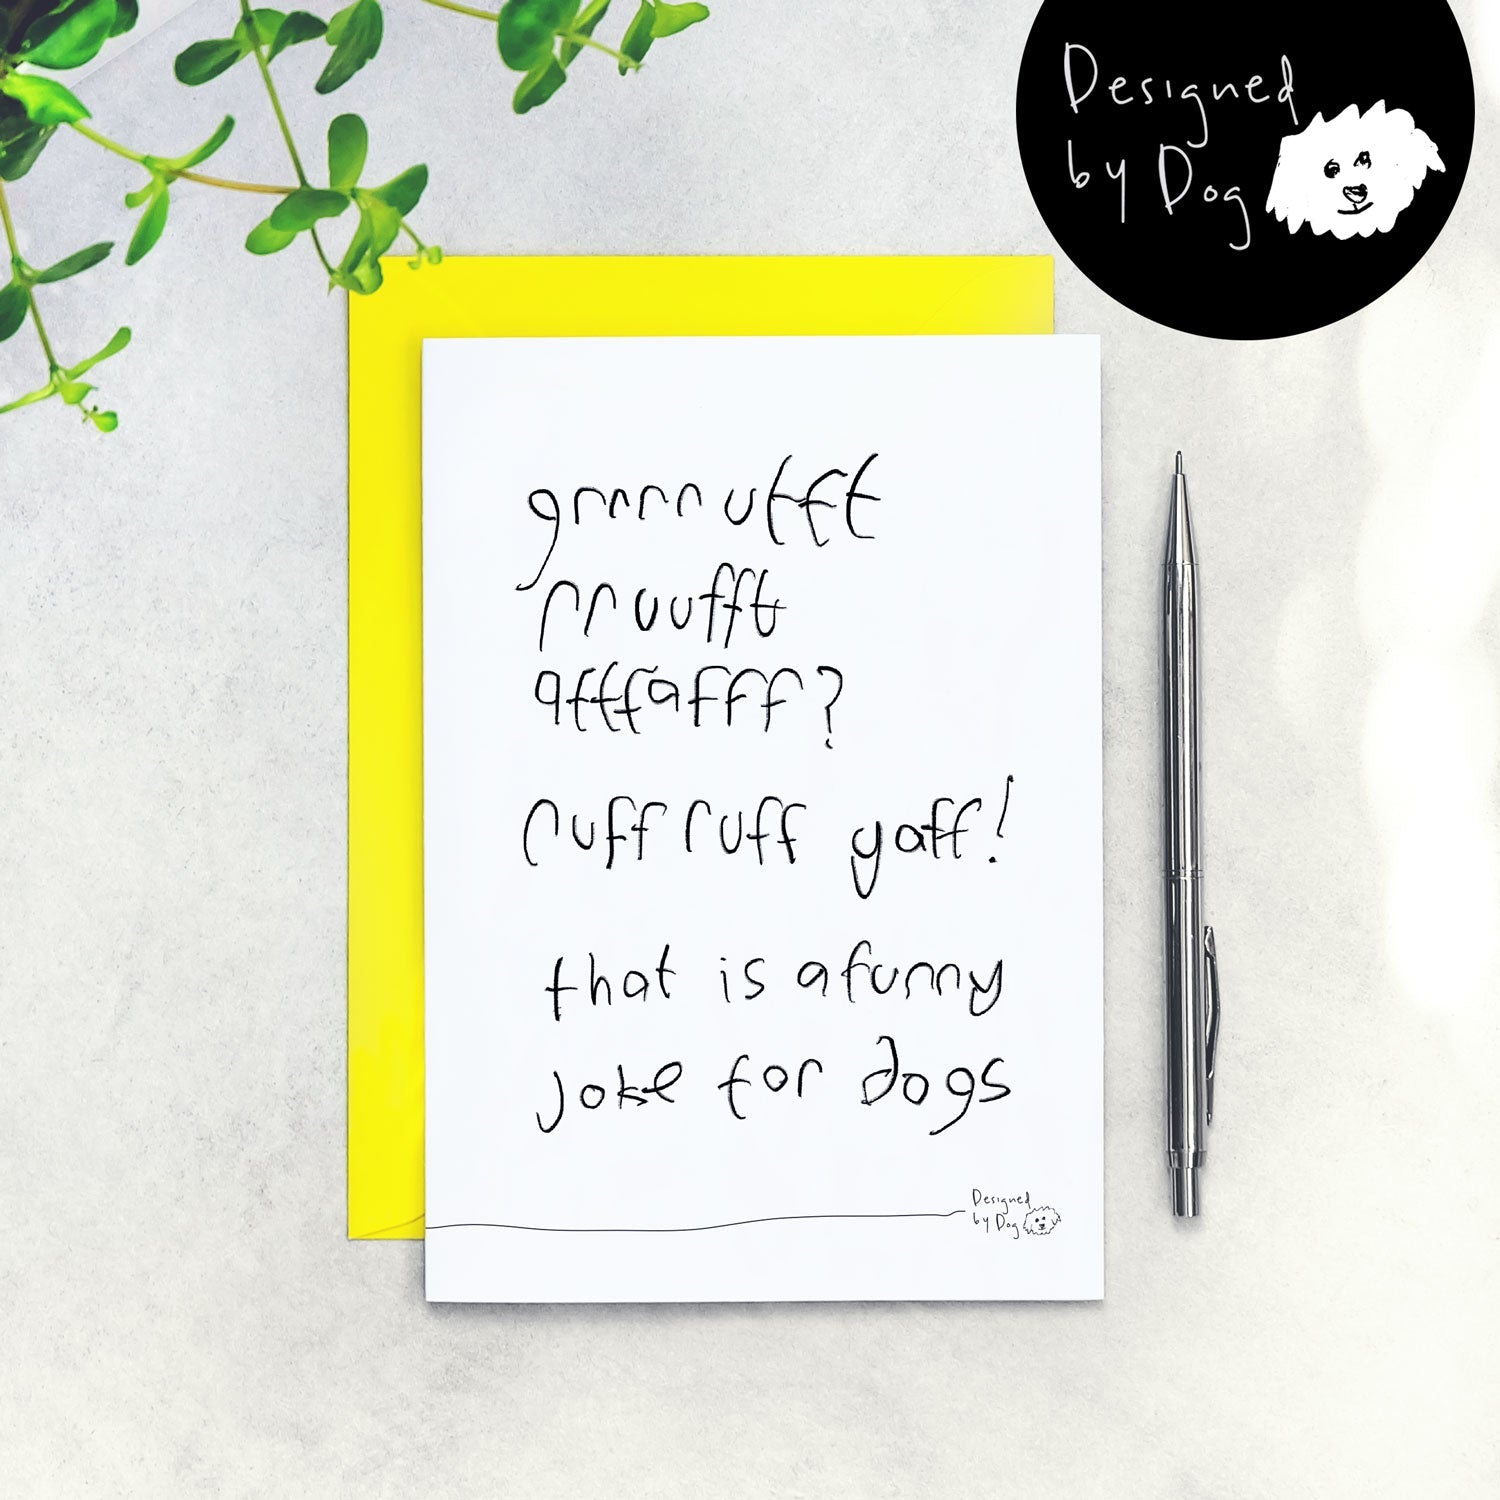 Designed
by Dog
grrrrufft
rruufft
afffafff?
ruff ruff yaff!
that is a funny
joke for dogs
Designed
by Dog